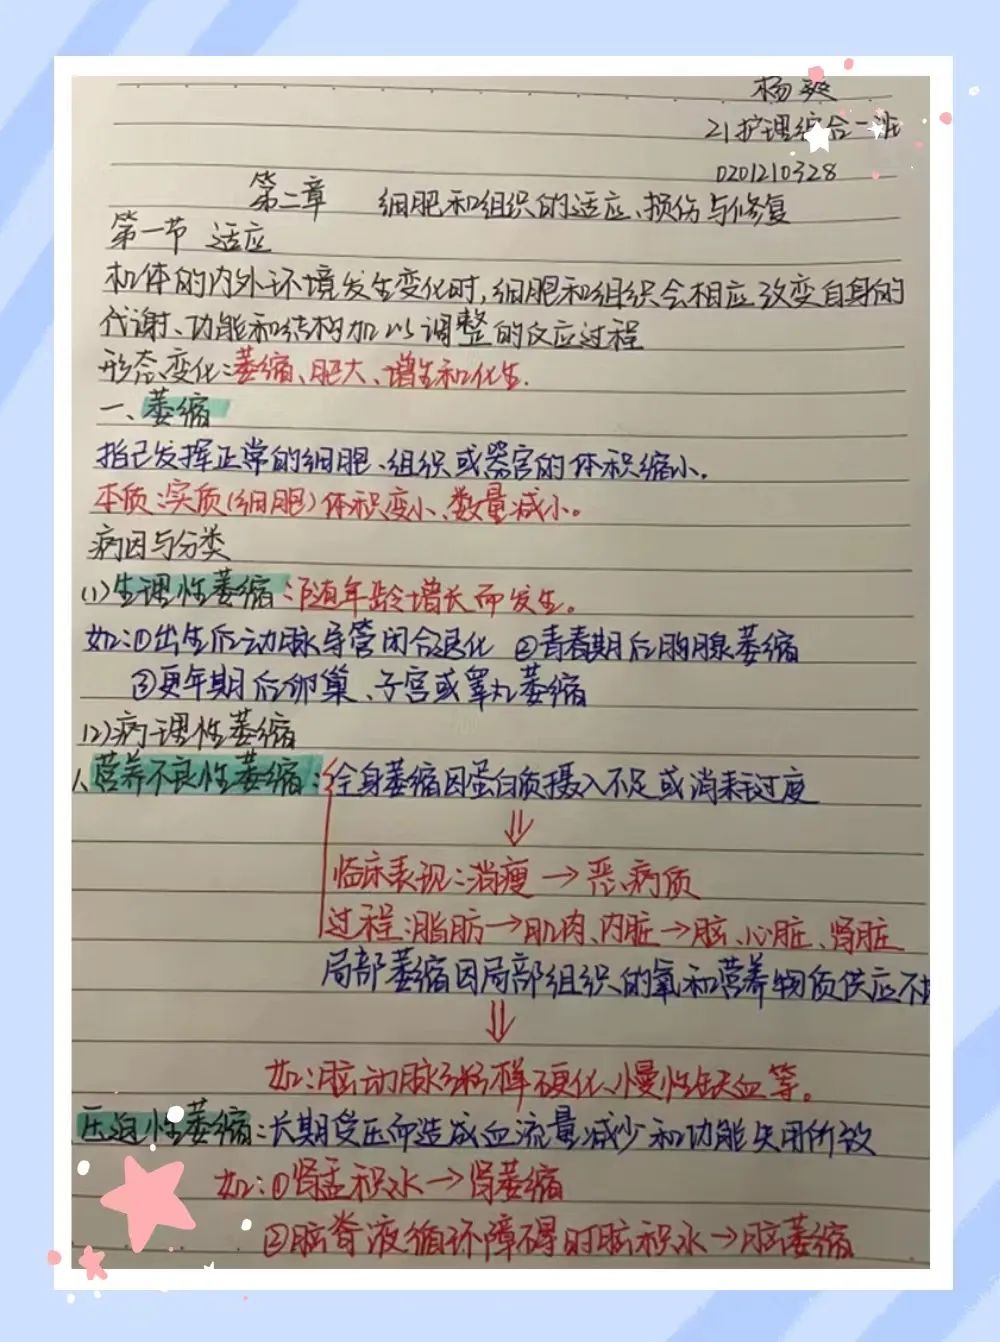 杨爽
21护理综合二班
0201210328
第二章 细胞和组织的适应、损伤与修复
第一节 适应
机体的内外环境发生变化时,细胞和组织会相应改变自身的
代谢、功能和结构加以调整的反应过程
形态变化:萎缩、肥大、增生和化生.
一、萎缩
指已发挥正常的细胞、组织或器官的体积缩小.
本质:实质(细胞)体积变小、数量减小。
病因与分类
(1)生理性萎缩:随年龄增长而发生。
如:①出生后动脉导管闭合退化 ②青春期后胸腺萎缩
③更年期后卵巢、子宫或睾丸萎缩
(2)病理性萎缩
1、营养不良性萎缩:全身萎缩因蛋白质摄入不足或消耗过度
⇓
临床表现:消瘦→恶病质
过程:脂肪→肌肉、内脏→脑、心脏、肾脏
局部萎缩因局部组织的氧和营养物质供应不
⇓
如:脑动脉粥样硬化、慢性缺血等。
压迫性萎缩:长期受压而造成血流量减少和功能失用所致
如:①肾盂积水→肾萎缩
②脑脊液循环障碍时脑积水→脑萎缩